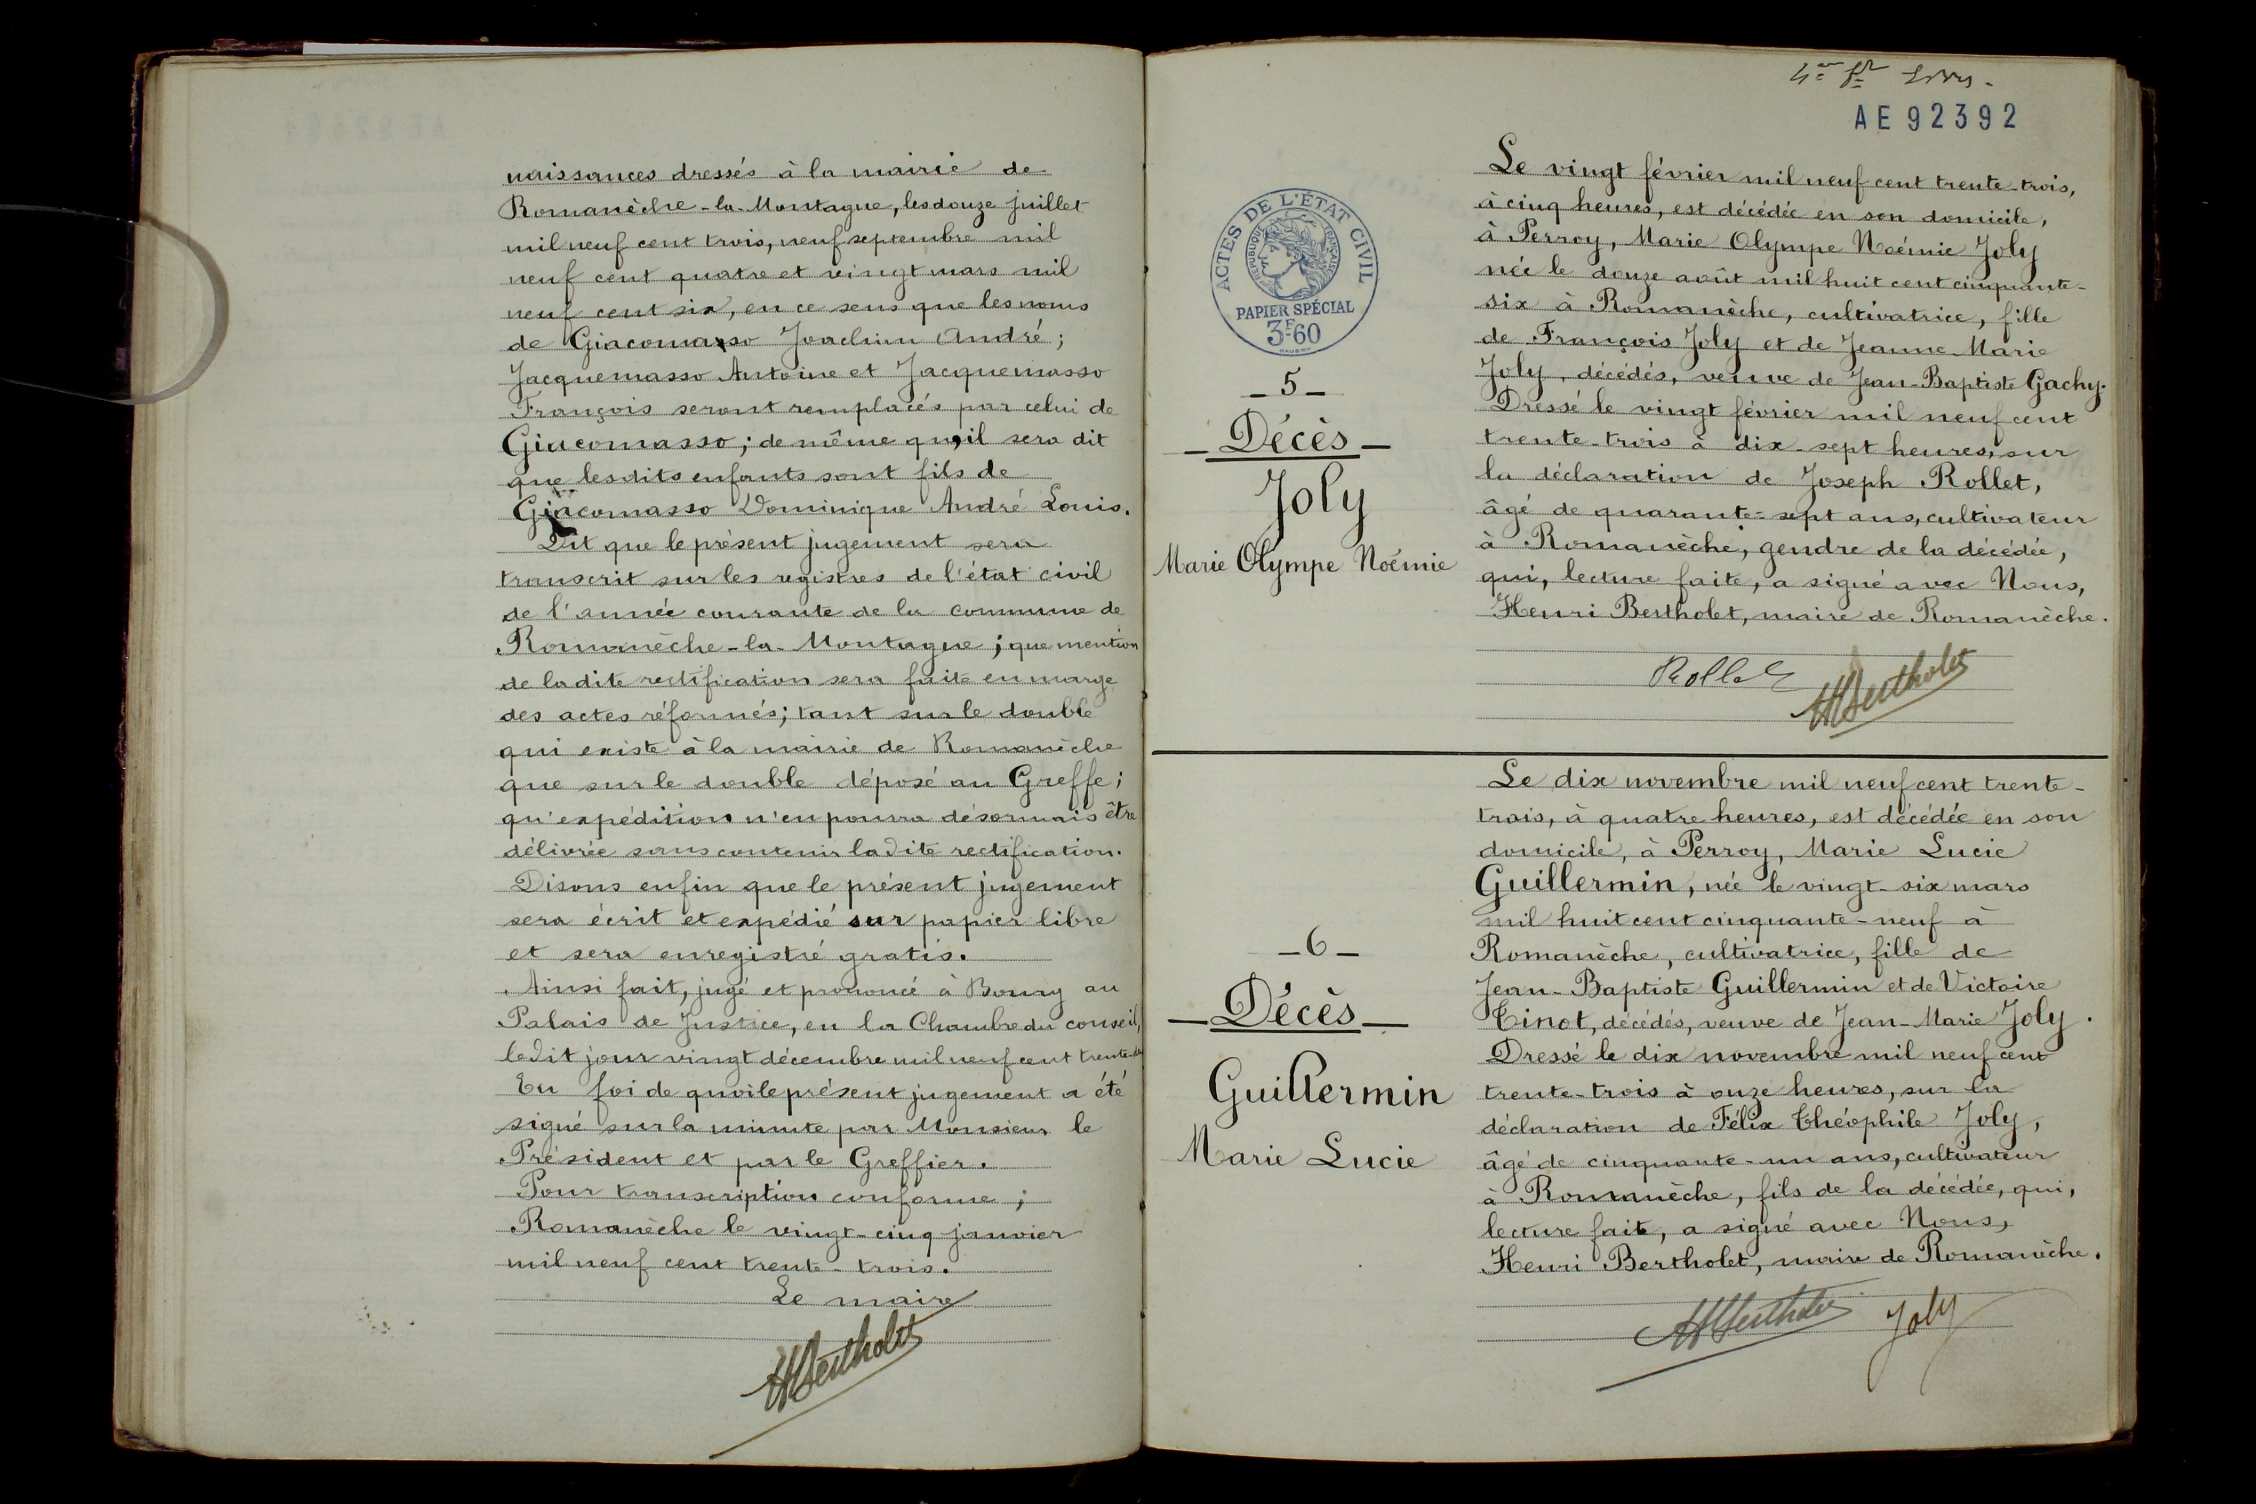 naissances dressés à la mairie de
Romanèche-la-Montagne, les douze juillet
mil neuf cent trois, neuf septembre mil
neuf cent quatre et vingt mars mil
neuf cent six, en ce sens que les noms
de Giacomasso Joachim André;
Jacquemasso Antoine et Jacquemasso
François seront remplacés par celui de
Giacomasso; de même qu'il sera dit
que lesdits enfants sont fils de
Giacomasso Dominique André Louis.
Dit que le présent jugement sera
transcrit sur les registres de l'état civil
de l'année courante de la commune de
Romanèche-la-Montagne; que mention
de ladite rectification sera faite en marge
des actes réformés; tant sur le double
qui existe à la mairie de Romanèche
que sur le double déposé au Greffe;
qu'expédition n'en pourra désormais être
délivrée sans contenir ladite rectification.
Disons enfin que le présent jugement
sera écrit et expédié sur papier libre
et sera enregistré gratis.
Ainsi fait, jugé et prononcé à Bourg au
Palais de Justice, en la Chambre du conseil,
ledit jour vingt décembre mil neuf cent trente-
En foi de quoi le présent jugement a été
signé sur la minute par Monsieur le
Président et par le Greffier.
Pour transcription conforme;
Romanèche le vingt-cinq janvier
mil neuf cent trente-trois.
Le maire
HBertholet
AE 92392
ACTES DE L'ÉTAT CIVIL
RÉPUBLIQUE FRANÇAISE
PAPIER SPÉCIAL
3F60
_5_
_Décès_
Joly
Marie Olympe Noémie
Le vingt février mil neuf cent trente-trois,
à cinq heures, est décédée en son domicile,
à Perroy, Marie Olympe Noémie Joly
née le douze août mil huit cent cinquante-
six à Romanèche, cultivatrice, fille
de François Joly et de Jeanne-Marie
Joly, décédés, veuve de Jean-Baptiste Gachy.
Dressé le vingt février mil neuf cent
trente-trois à dix-sept heures, sur
la déclaration de Joseph Rollet,
âgé de quarante-sept ans, cultivateur
à Romanèche, gendre de la décédée,
qui, lecture faite, a signé avec Nous,
Henri Bertholet, maire de Romanèche.
Rollet HBertholet
_6_
_Décès_
Guillermin
Marie Lucie
Le dix novembre mil neuf cent trente-
trois, à quatre heures, est décédée en son
domicile, à Perroy, Marie Lucie
Guillermin, née le vingt-six mars
mil huit cent cinquante-neuf à
Romanèche, cultivatrice, fille de
Jean-Baptiste Guillermin et de Victoire
Tinot, décédés, veuve de Jean-Marie Joly.
Dressé le dix novembre mil neuf cent
trente-trois à onze heures, sur la
déclaration de Félix Théophile Joly,
âgé de cinquante-un ans, cultivateur
à Romanèche, fils de la décédée, qui,
lecture faite, a signé avec Nous,
Henri Bertholet, maire de Romanèche.
HBertholet Joly